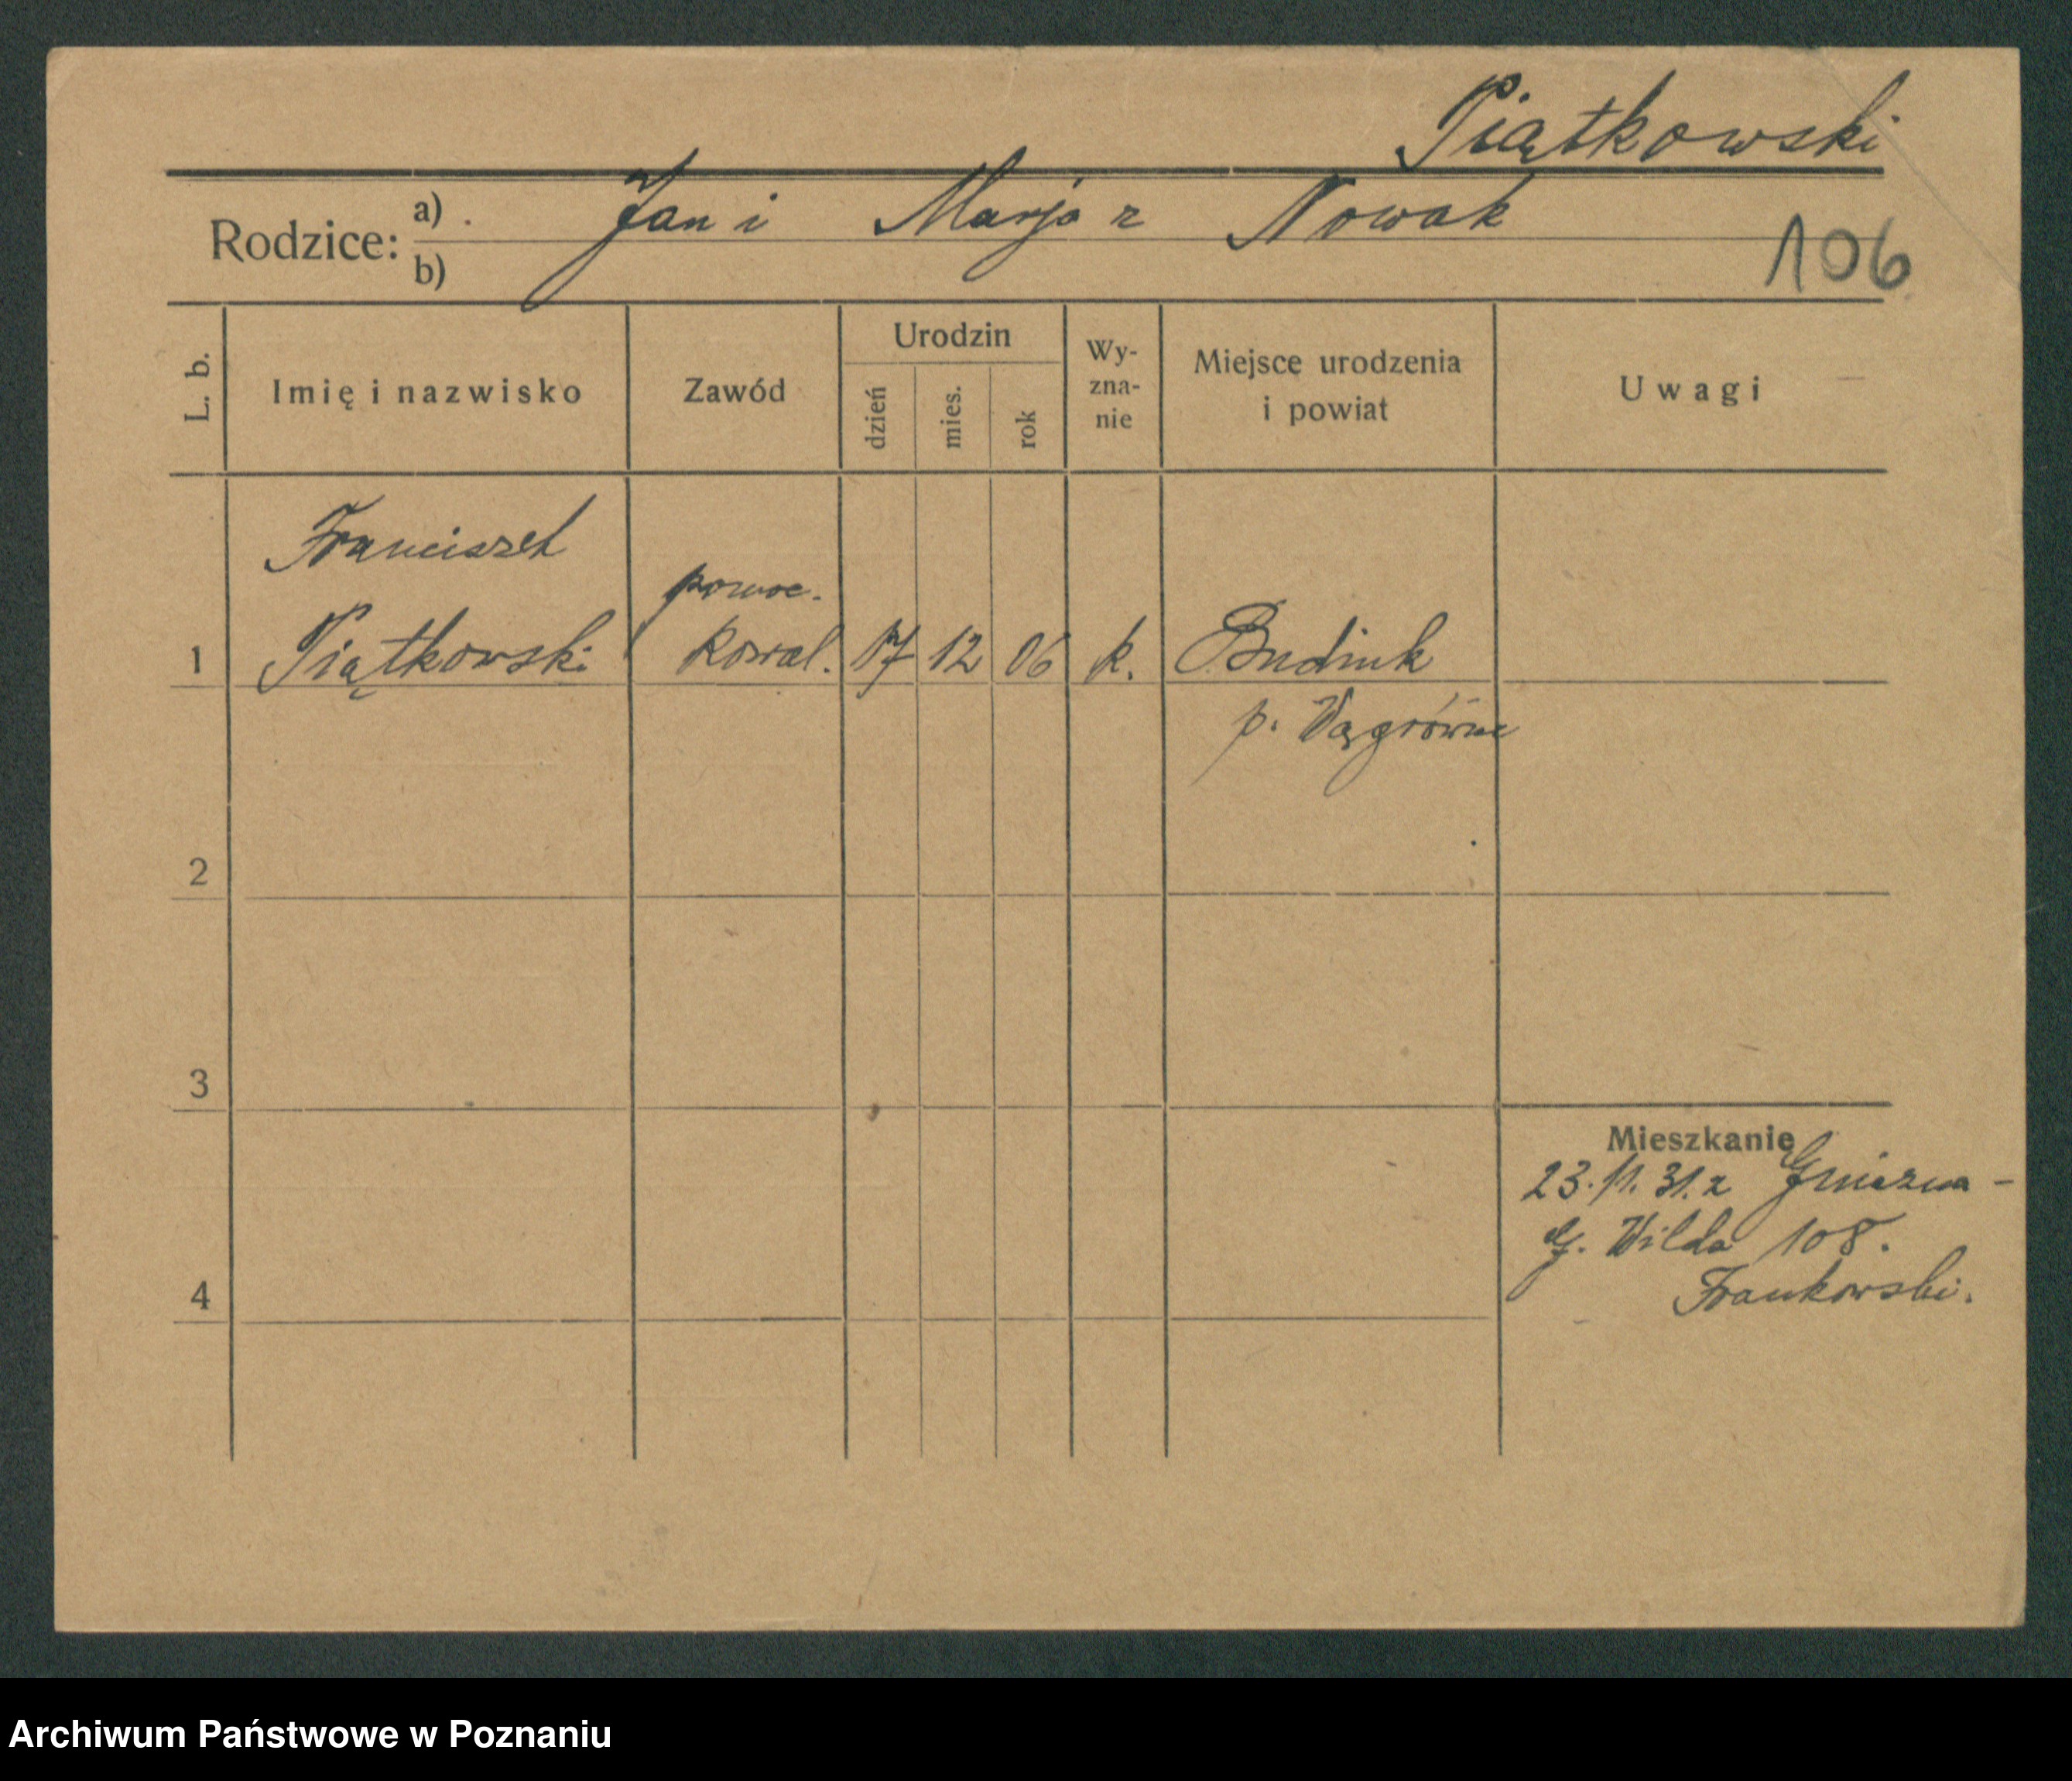 Piątkowski
Rodzice: a) Jan i Marja z Nowak
b)
106
L. b.
Imię i nazwisko
Zawód
Urodzin
dzień
mies.
rok
Wy-
zna-
nie
Miejsce urodzenia
i powiat
Uwagi
Franciszek
pomoc.
1 Piątkowski kowal. 17 12 06 k.
p. Wągrówiec
2
3
4
Mieszkanie
23.11.31. z Gniezna -
G. Wilda 108.
Frankowski.
Archiwum Państwowe w Poznaniu